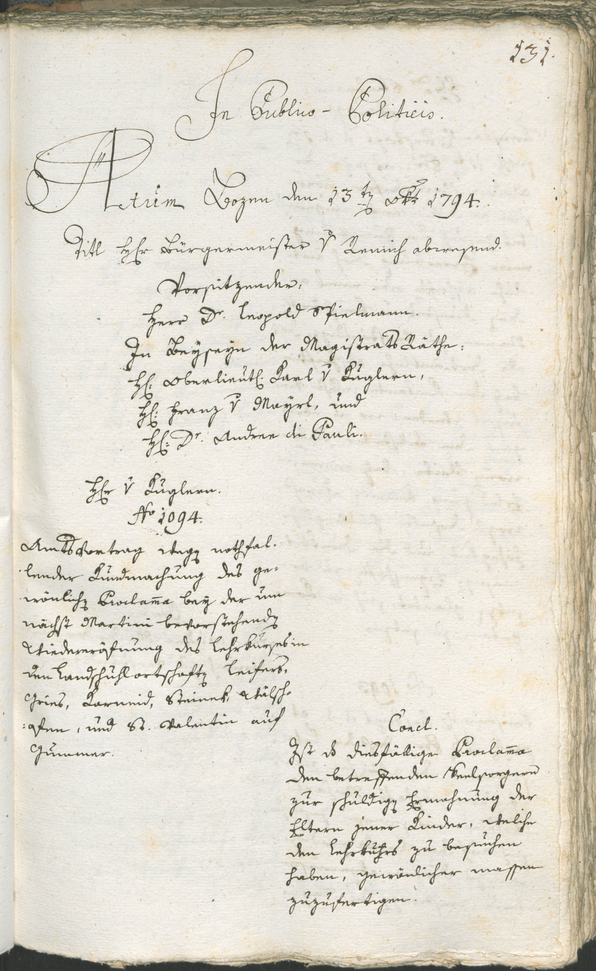 131.
In Publico-Politicis.
Actum Bozen den 13tn Okt. 1794.
Titl Hhr Bürgermeister v Remich abwesend.
Vorsitzender:
Herr Dr. Leopold Spielmann.
In Beyseyn der Magistrats Räthe:
H: Oberlieut. Karl v Kuglern,
H: Franz v Mayrl, und
H: Dr. Andree di Pauli.
Hhr v Kuglern.
No 1094.
Amtsvortrag wegn nothfal-
lender Kundmachung des ge-
wönlichn Proclama bey der um
nächst Martini bevorstehendn
Wiedereröfnung des Lehrkurses in
den Landschulortschaftn Leifers,
Gries, Karneid, Steinek, Wälsch-
ofen, und St. Valentin auf
Gummer.
Concl.
Ist das diesfällige Proclama
den betreffenden Seelsorgern
zur schuldign Ermahnung der
Eltern jener Kinder, welche
den Lehrkurs zu besuchen
haben, gewönlicher massen
zuzufertigen.